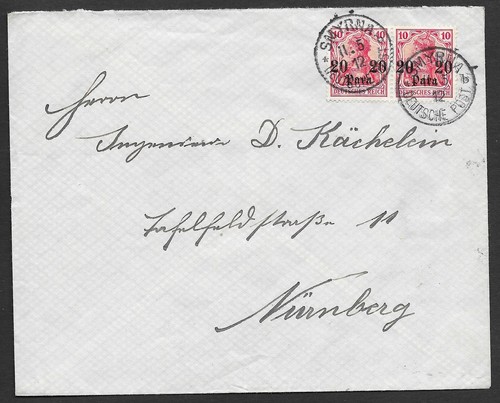 10 10
20 20
Para
DEUTSCHES REICH
10 10
20 20
Para
DEUTSCHES REICH
SMYRNA
11.5
12
SMYRNA
12
DEUTSCHE POST
b
Herrn
D. Kächelein
Tafelfeldstraße 11
Nürnberg